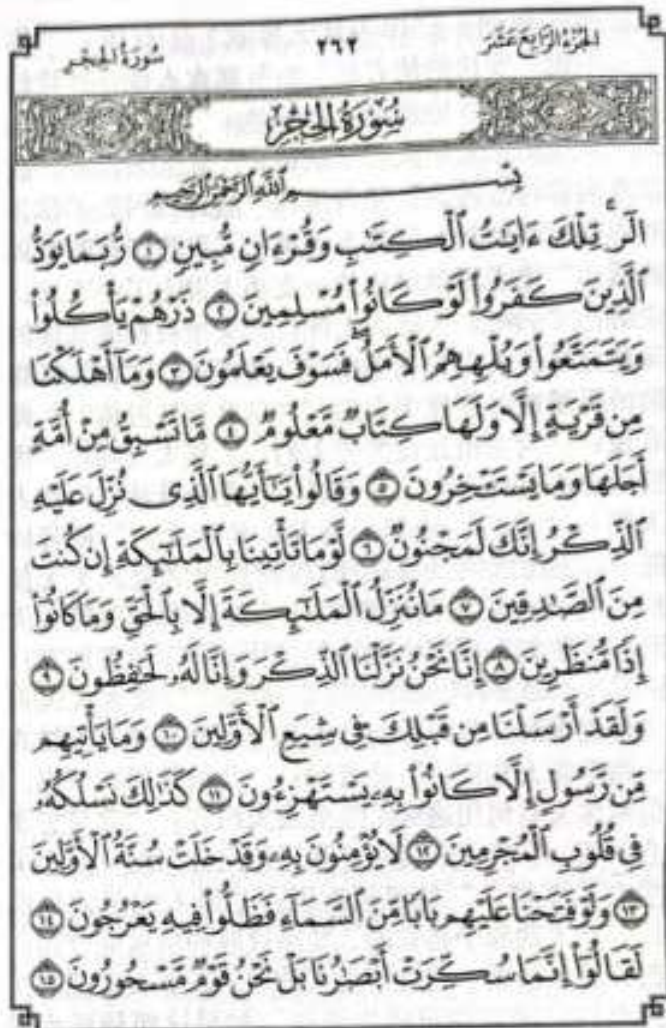 الجزء الرابع عشر
٢٦٢
سورة الحجر
سُورَةُ الحِجْرِ
بِسْمِ اللَّهِ الرَّحْمَٰنِ الرَّحِيمِ
الٓر ۚ تِلْكَ ءَايَٰتُ ٱلْكِتَٰبِ وَقُرْءَانٍ مُّبِينٍ ١ رُّبَمَا يَوَدُّ
ٱلَّذِينَ كَفَرُوا۟ لَوْ كَانُوا۟ مُسْلِمِينَ ٢ ذَرْهُمْ يَأْكُلُوا۟
وَيَتَمَتَّعُوا۟ وَيُلْهِهِمُ ٱلْأَمَلُ ۖ فَسَوْفَ يَعْلَمُونَ ٣ وَمَآ أَهْلَكْنَا
مِن قَرْيَةٍ إِلَّا وَلَهَا كِتَابٌ مَّعْلُومٌ ٤ مَّا تَسْبِقُ مِنْ أُمَّةٍ
أَجَلَهَا وَمَا يَسْتَـْٔخِرُونَ ٥ وَقَالُوا۟ يَٰٓأَيُّهَا ٱلَّذِى نُزِّلَ عَلَيْهِ
ٱلذِّكْرُ إِنَّكَ لَمَجْنُونٌ ٦ لَّوْ مَا تَأْتِينَا بِٱلْمَلَٰٓئِكَةِ إِن كُنتَ
مِنَ ٱلصَّٰدِقِينَ ٧ مَا نُنَزِّلُ ٱلْمَلَٰٓئِكَةَ إِلَّا بِٱلْحَقِّ وَمَا كَانُوٓا۟
إِذًا مُّنظَرِينَ ٨ إِنَّا نَحْنُ نَزَّلْنَا ٱلذِّكْرَ وَإِنَّا لَهُۥ لَحَٰفِظُونَ ٩
وَلَقَدْ أَرْسَلْنَا مِن قَبْلِكَ فِى شِيَعِ ٱلْأَوَّلِينَ ١٠ وَمَا يَأْتِيهِم
مِّن رَّسُولٍ إِلَّا كَانُوا۟ بِهِۦ يَسْتَهْزِءُونَ ١١ كَذَٰلِكَ نَسْلُكُهُۥ
فِى قُلُوبِ ٱلْمُجْرِمِينَ ١٢ لَا يُؤْمِنُونَ بِهِۦ وَقَدْ خَلَتْ سُنَّةُ ٱلْأَوَّلِينَ
١٣ وَلَوْ فَتَحْنَا عَلَيْهِم بَابًا مِّنَ ٱلسَّمَآءِ فَظَلُّوا۟ فِيهِ يَعْرُجُونَ ١٤
لَقَالُوٓا۟ إِنَّمَا سُكِّرَتْ أَبْصَٰرُنَا بَلْ نَحْنُ قَوْمٌ مَّسْحُورُونَ ١٥